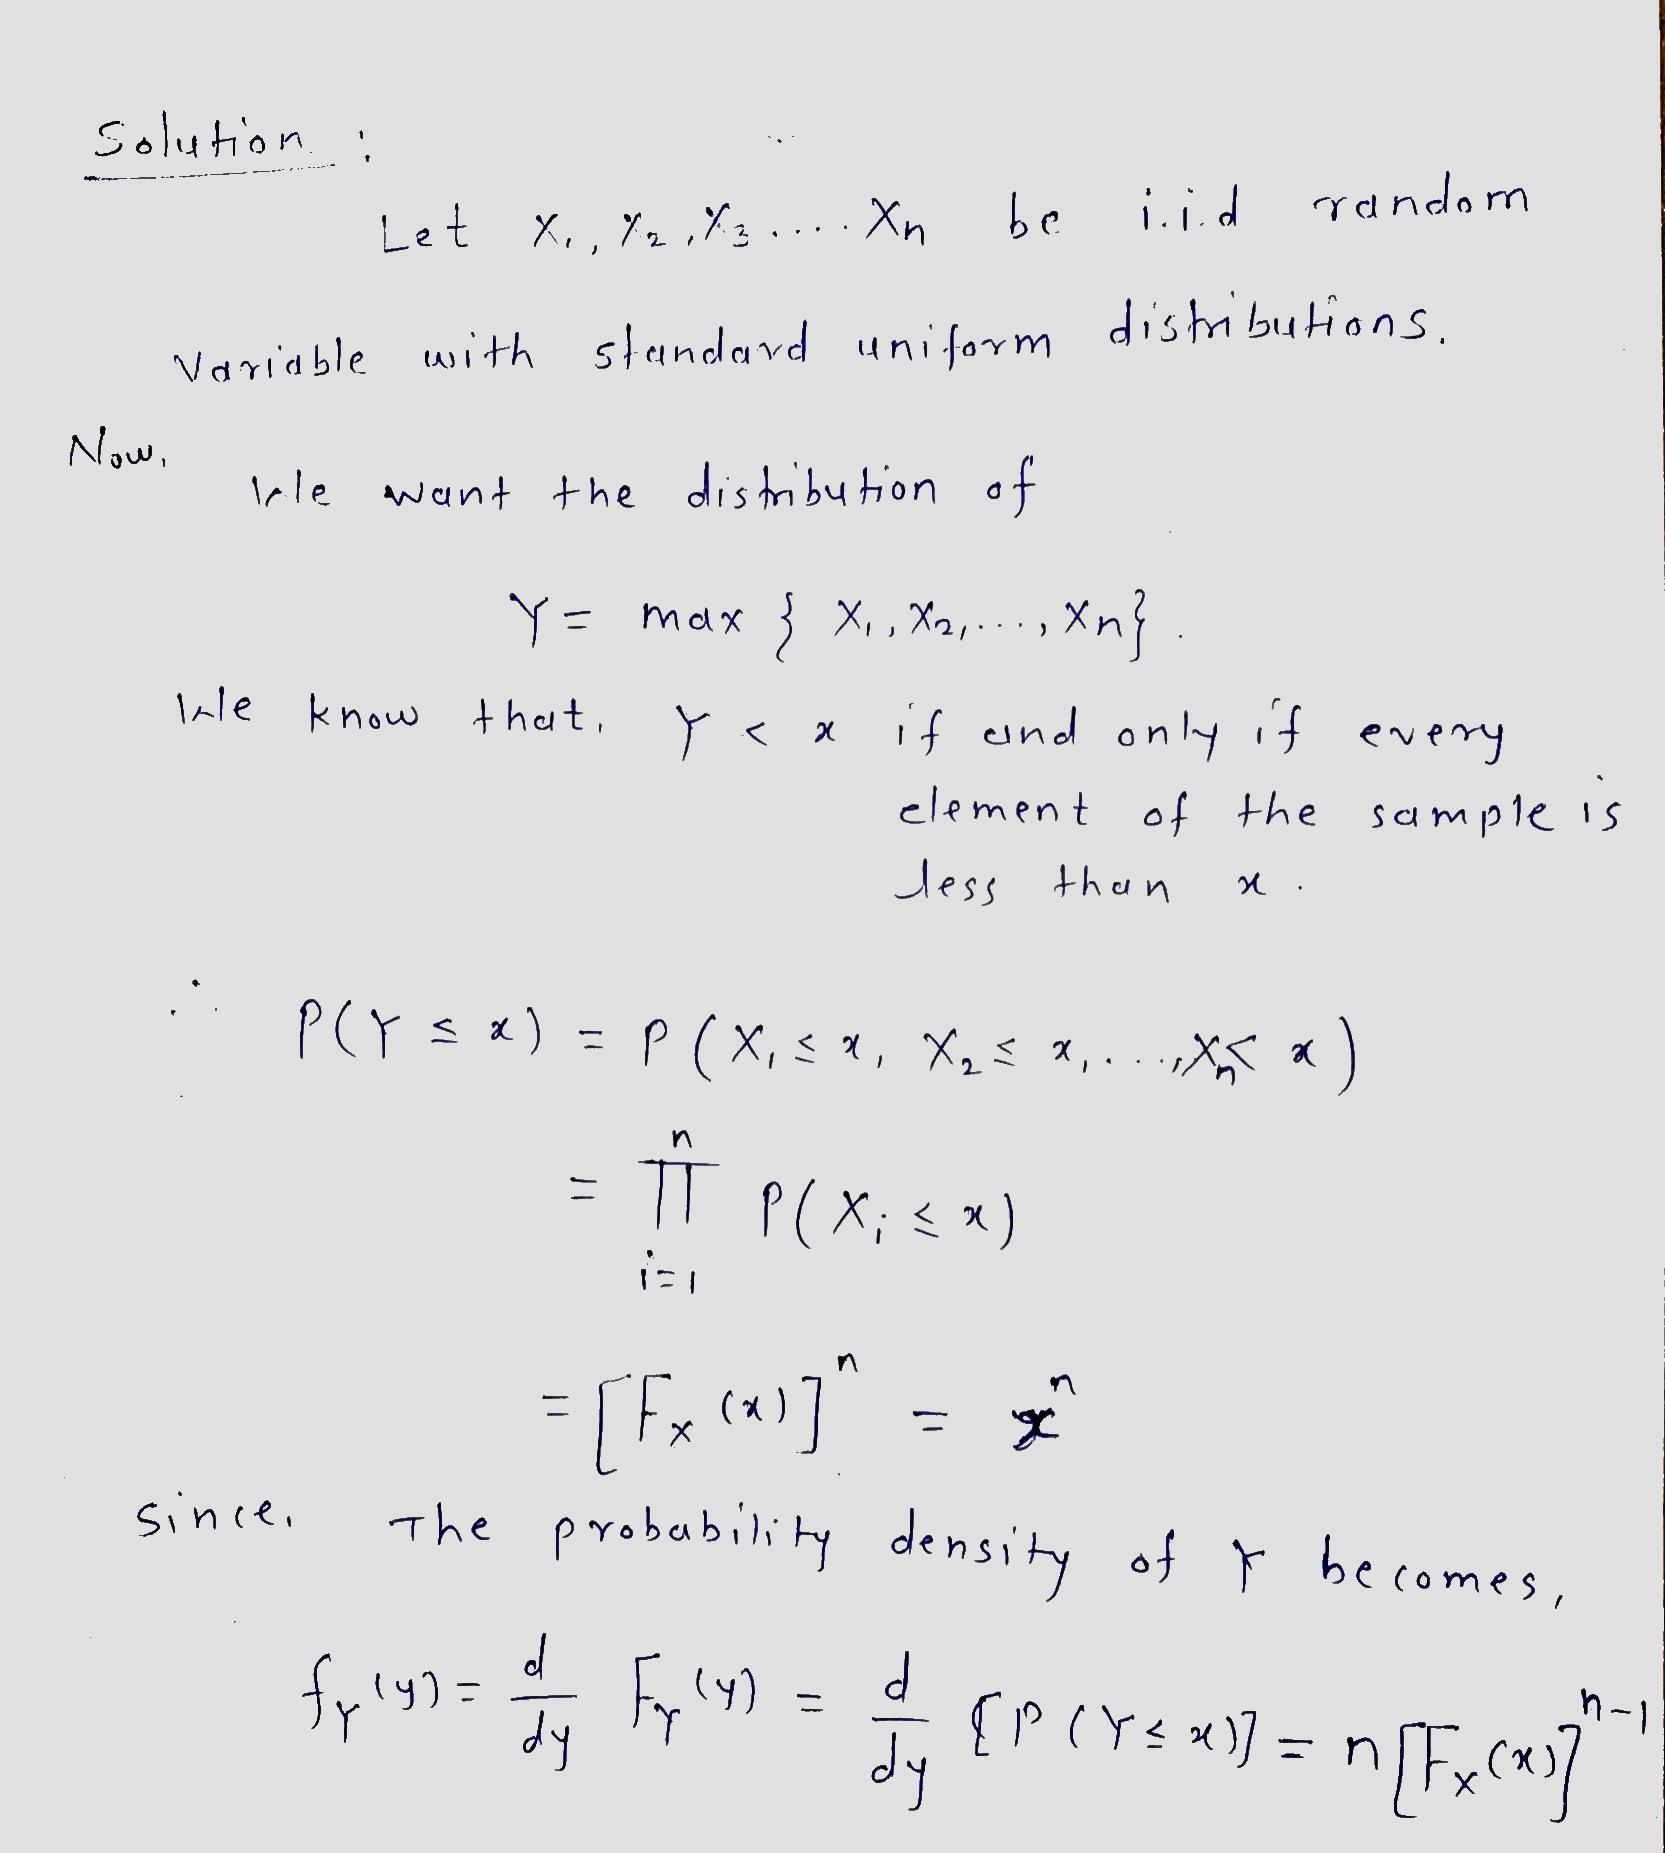 Solution :
Let X₁, X₂, X₃ .... Xn be i.i.d random
Variable with standard uniform distributions.
Now,
We want the distribution of
Y = max { X₁, X₂, ..., Xn} .
We know that, Y < x if and only if every
element of the sample is
less than x .
∴ P(Y ≤ x) = P (X₁ ≤ x, X₂ ≤ x, ..., Xn ≤ x)
= ∏ᵢ₌₁ⁿ P(Xᵢ ≤ x)
= [F_X (x)]ⁿ = xⁿ
Since, The probability density of Y becomes,
f_Y (y) = d/dy F_Y (y) = d/dy [P (Y ≤ x)] = n [F_X (x)]ⁿ⁻¹